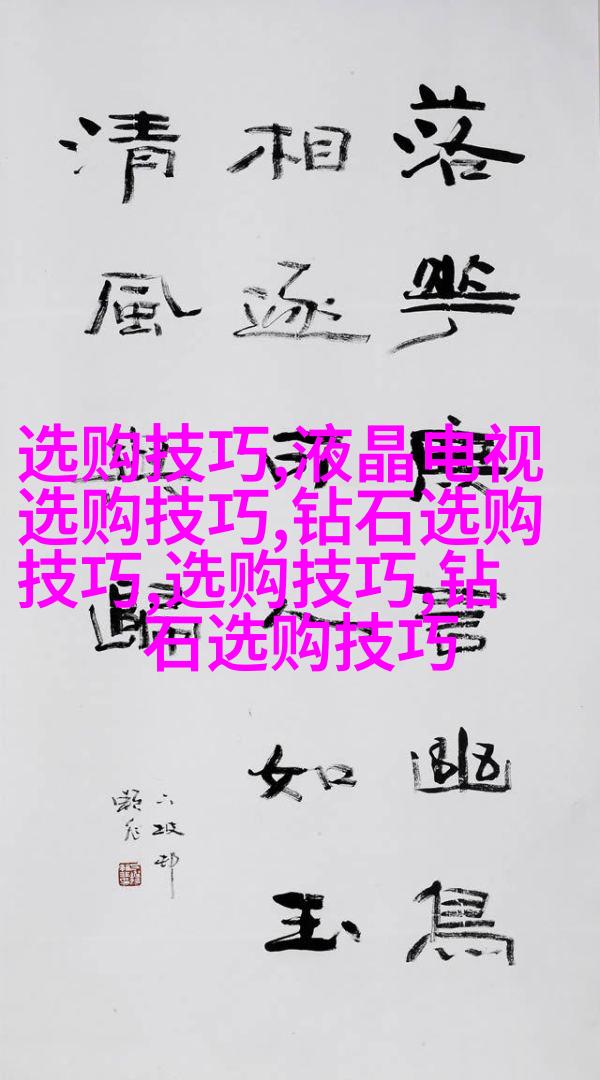 选购技巧,液晶电视
选购技巧,钻石选购
技巧,选购技巧,钻
石选购技巧
落華言幽鳥
相逐可人如玉
清風與歸